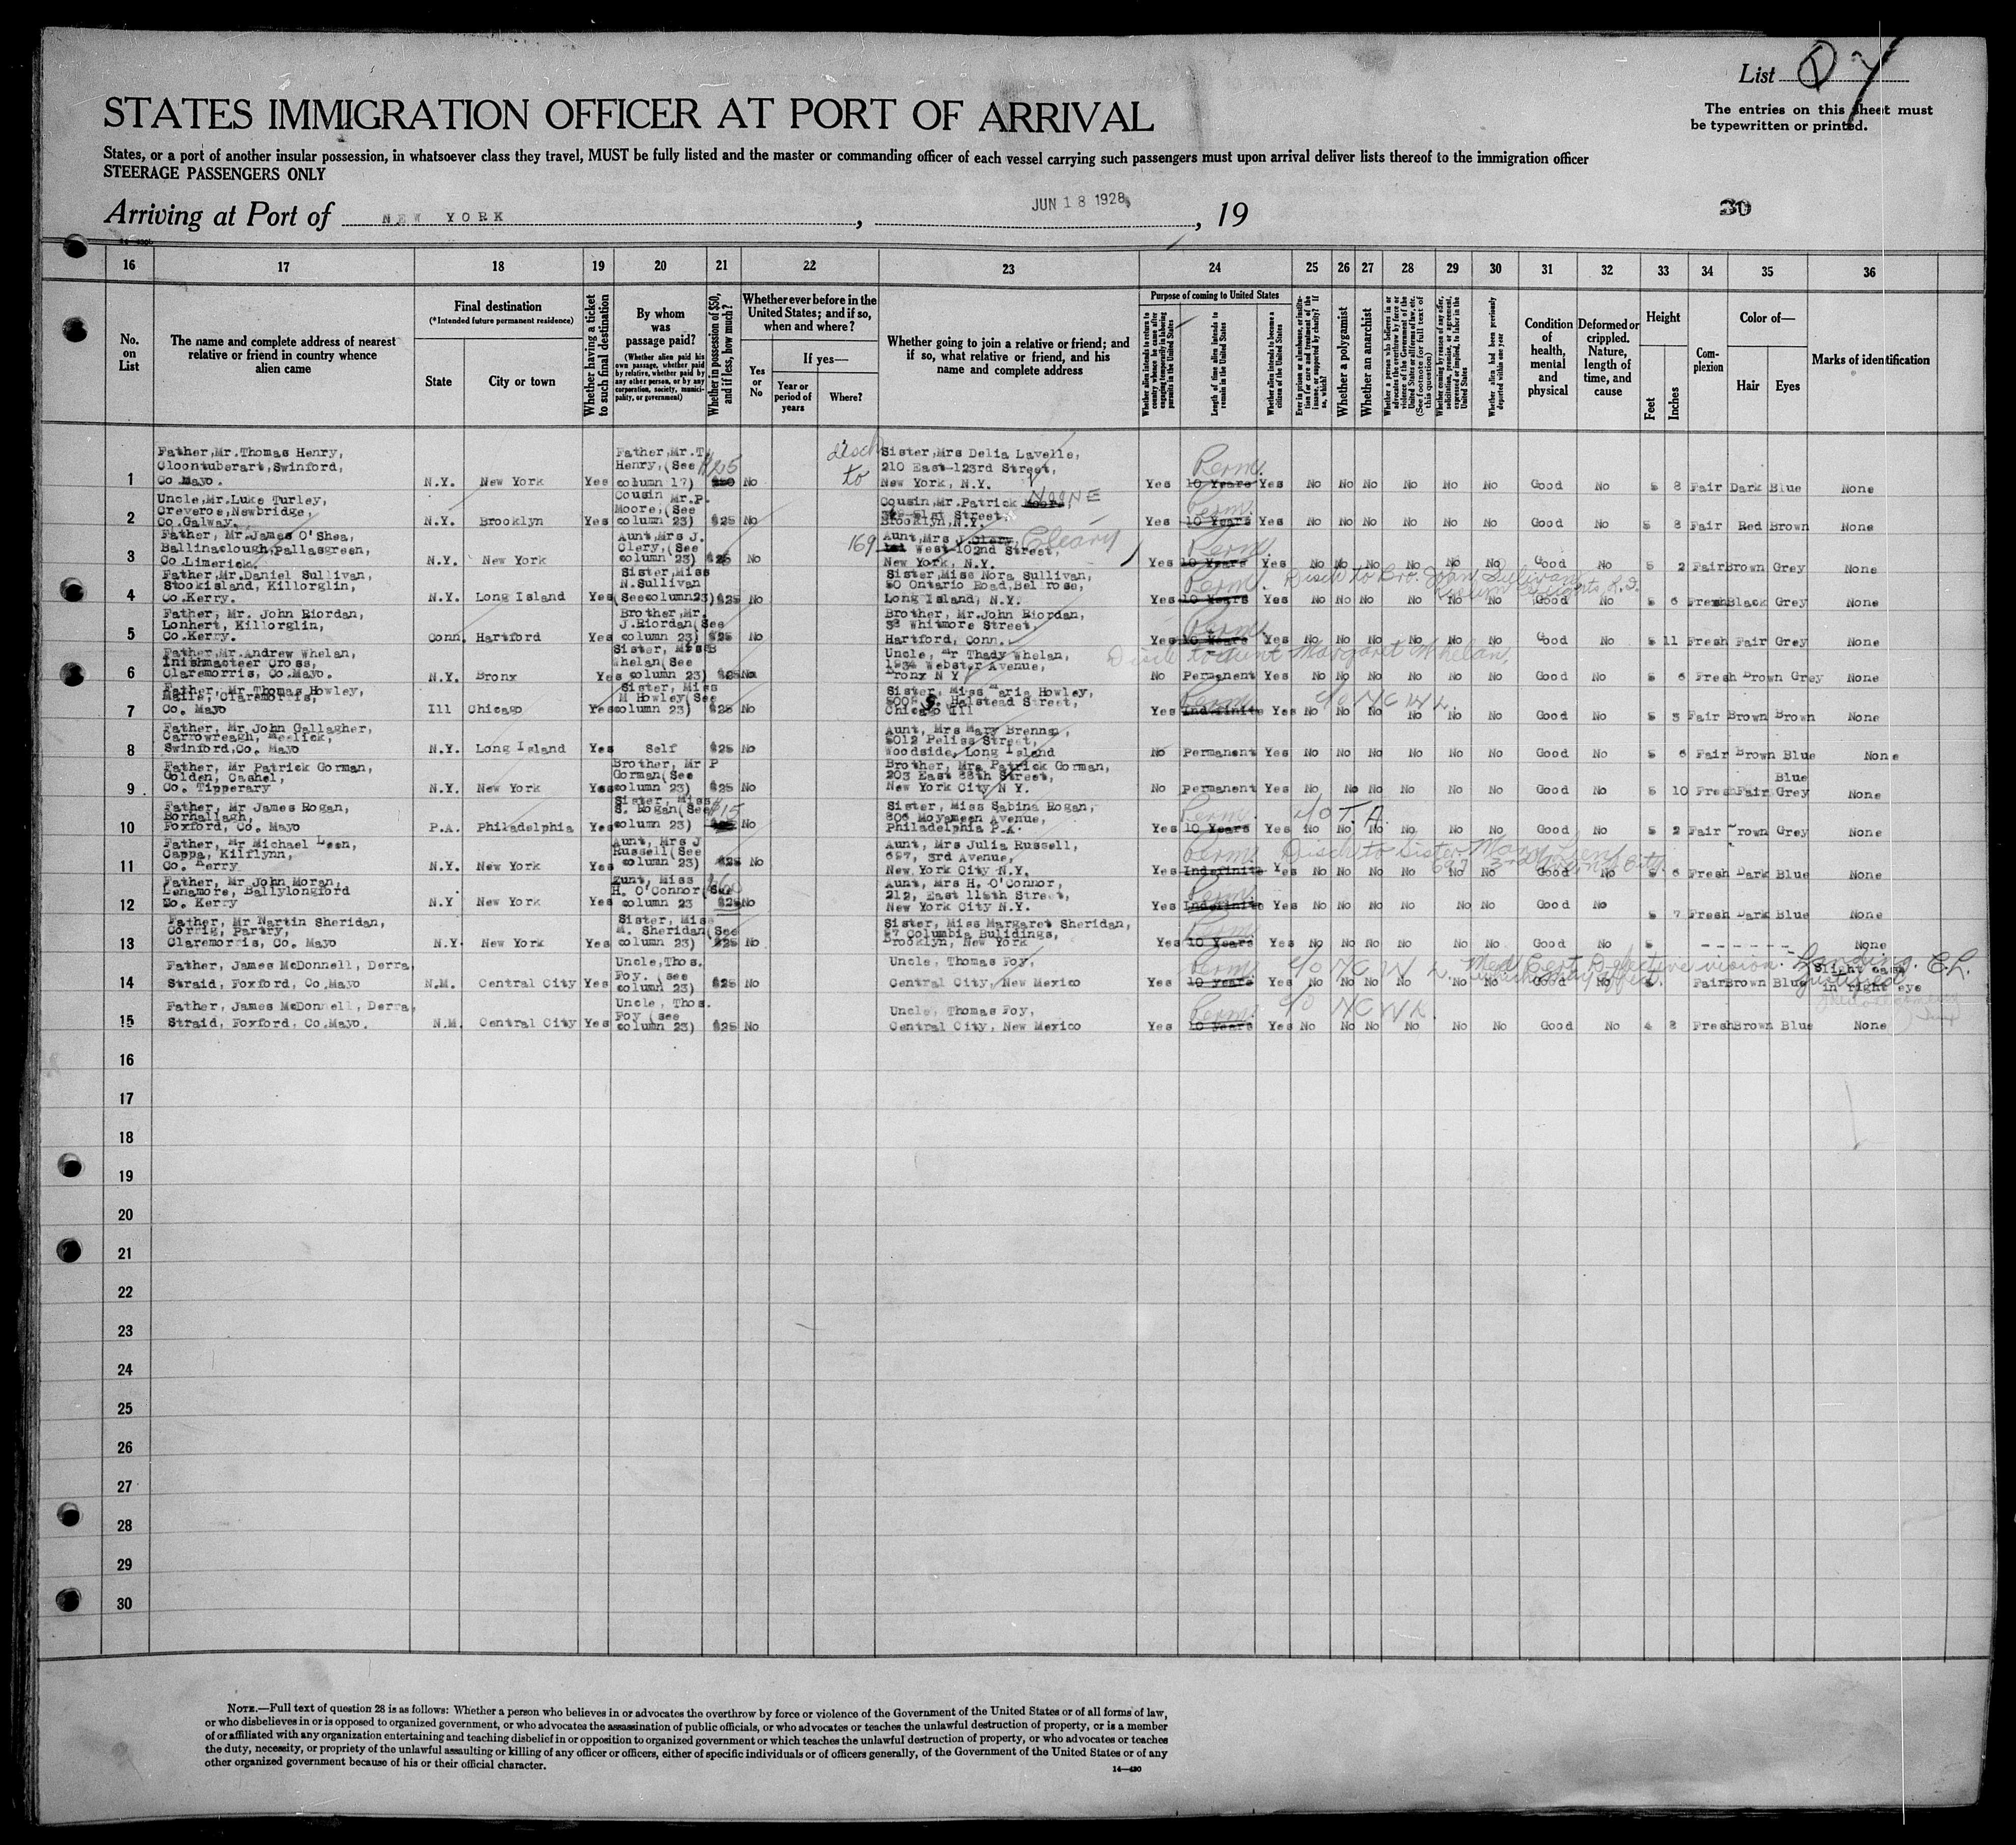 List D 7
STATES IMMIGRATION OFFICER AT PORT OF ARRIVAL
The entries on this sheet must
be typewritten or printed.
States, or a port of another insular possession, in whatsoever class they travel, MUST be fully listed and the master or commanding officer of each vessel carrying such passengers must upon arrival deliver lists thereof to the immigration officer
STEERAGE PASSENGERS ONLY
Arriving at Port of NEW YORK, JUN 18 1928, 19
30
16 17 18 19 20 21 22 23 24 25 26 27 28 29 30 31 32 33 34 35 36
No. on List
The name and complete address of nearest relative or friend in country whence alien came
Final destination
(*Intended future permanent residence)
State
City or town
Whether having a ticket to such final destination
By whom was passage paid?
(Whether alien paid his own passage, whether paid by relative, whether paid by any other person, or by any corporation, society, municipality, or government)
Whether in possession of $50, and if less, how much?
Whether ever before in the United States; and if so, when and where?
Yes or No
If yes—
Year or period of years
Where?
Whether going to join a relative or friend; and if so, what relative or friend, and his name and complete address
Purpose of coming to United States
Whether alien intends to return to country whence he came after engaging temporarily in laboring pursuits in the United States
Length of time alien intends to remain in the United States
Whether alien intends to become a citizen of the United States
Ever in prison or almshouse, or institution for care and treatment of the insane, or supported by charity? If so, which?
Whether a polygamist
Whether an anarchist
Whether a person who believes in or advocates the overthrow by force or violence of the Government of the United States or all forms of law, etc. (See footnote for full text of this question)
Whether coming by reason of any offer, solicitation, promise, or agreement, expressed or implied, to labor in the United States
Whether alien had been previously deported within one year
Condition of health, mental and physical
Deformed or crippled. Nature, length of time, and cause
Height
Feet
Inches
Complexion
Color of—
Hair
Eyes
Marks of identification
1 Father,Mr.Thomas Henry, Cloontuberart,Swinford, Co Mayo. N.Y. New York Yes Father,Mr.T. Henry,(See column 17) No disch to Sister,Mrs Delia Lavelle, 210 East-123rd Street, New York, N.Y. Yes Perm. 10 Years Yes No No No No No No Good No 5 8 Fair Dark Blue None
2 Uncle,Mr.Luke Turley, Creveroe,Newbridge, Co.Galway. N.Y. Brooklyn Yes Cousin Mr.P. Moore,(See column 23) $25 No Cousin,Mr.Patrick NOONE 51st Street, Brooklyn,N.Y. Yes Perm. 10 Years Yes No No No No No No Good No 5 8 Fair Red Brown None
3 Father, Mr.James O'Shea, Ballinaclough,Pallasgreen, Co.Limerick. N.Y. New York Yes Aunt,Mrs J. Clery,(See column 23) $25 No 169 Aunt,Mrs J.Clery, Cleary West 102nd Street, New York, N.Y. Yes Perm. 10 Years Yes No No No No No No Good No 5 2 Fair Brown Grey None
4 Father,Mr.Daniel Sullivan, Stookisland, Killorglin, Co.Kerry. N.Y. Long Island Yes Sister,Miss N.Sullivan (See column23) $25 No Sister,Miss Nora Sullivan, 50 Ontario Road,Bel rose, Long Island, N.Y. Yes Perm. 10 Years Yes Disch to Bro. John Sullivan No No No No No No Good No 5 6 Fresh Black Grey None
5 Father, Mr. John Riordan, Lonhert, Killorglin, Co.Kerry. Conn. Hartford Yes Brother,Mr. J.Riordan(See column 23) $25 No Brother, Mr.John Riordan, 38 Whitmore Street, Hartford, Conn. Yes Perm. 10 Years Yes No No No No No No Good No 5 11 Fresh Fair Grey None
6 Father,Mr.Andrew Whelan, Inishmacteer Cross, Claremorris, Co.Mayo. N.Y. Bronx Yes Sister, Miss B Whelan(See column 23) $25 No Uncle, Mr Thady Whelan, 1934 Webster Avenue, Bronx N Y Disch to aunt Margaret Whelan, No Permanent Yes No No No No No No Good No 5 6 Fresh Brown Grey None
7 Father, Mr Thomas Howley, Claremorris, Co. Mayo Ill Chicago Yes Sister, Miss M Howley(See column 23) $25 No Sister, Miss Maria Howley, S. Halstead Street, Chicago Ill Yes Perm. Indefinite Yes No No No No No No Good No 5 3 Fair Brown Brown None
8 Father, Mr John Gallagher, Carrowreagh, Meelick, Swinford,Co. Mayo N.Y. Long Island Yes Self $25 No Aunt, Mrs Mary Brennan, 5012 Peliss Street, Woodside, Long Island No Permanent Yes No No No No No No Good No 5 6 Fair Brown Blue None
9 Father, Mr Patrick Gorman, Golden, Cashel, Co. Tipperary N.Y. New York Yes Brother, Mr P Gorman(See column 23) $25 No Brother, Mrs Patrick Gorman, 203 East 88th Street, New York City N Y. No Permanent Yes No No No No No No Good No 5 10 Fresh Fair Blue Grey None
10 Father, Mr James Rogan, Borhallagh, Foxford, Co. Mayo P.A. Philadelphia Yes Sister, Miss S. Rogan(See column 23) $15 No Sister, Miss Sabina Rogan, 806 Moyamean Avenue, Philadelphia P.A. Yes Perm. 10 Years Yes c/o T.A. No No No No No No Good No 5 2 Fair Brown Grey None
11 Father, Mr Michael Leen, Cappa, Kilflynn, Co. Kerry N.Y. New York Yes Aunt, Mrs J Russell(See column 23) $25 No Aunt, Mrs Julia Russell, 697, 3rd Avenue, New York City N.Y. Yes Perm. Indefinite Yes Disch to Sister Mary Leen 697 3rd Ave, N.Y. City. No No No No No No Good No 5 6 Fresh Dark Blue None
12 Father, Mr John Moran, Lenamore, Ballylongford Co. Kerry N.Y New York Yes Aunt, Miss H. O'Connor(See column 23 $25 No Aunt, Mrs H. O'Connor, 212, East 118th Street, New York City N.Y. Yes Perm. Indefinite Yes No No No No No No Good No 5 7 Fresh Dark Blue None
13 Father, Mr Martin Sheridan, Corrig, Partry, Claremorris, Co. Mayo N.Y. New York Yes Sister, Miss M. Sheridan(See column 23) $25 No Sister, Miss Margaret Sheridan, 57 Columbia Bulidings, Brooklyn, New York Yes Perm. 10 Years Yes No No No No No No Good No 5 - - - - - - None
14 Father, James McDonnell, Derra, Straid, Foxford, Co.Mayo N.M. Central City Yes Uncle,Thos. Foy. (see column 23) $25 No Uncle, Thomas Foy, Central City, New Mexico Yes Perm. 10 years Yes Med Cert Defective vision. No No No No No No Good No Fair Brown Blue Slight cast in right eye
15 Father, James McDonnell, Derra, Straid, Foxford, Co.Mayo. N.M. Central City Yes Uncle, Thos. Foy (see column 23) $25 No Uncle, Thomas Foy, Central City, New Mexico Yes Perm. 10 years Yes No No No No No No Good No 4 8 Fresh Brown Blue None
16
17
18
19
20
21
22
23
24
25
26
27
28
29
30
NOTE.—Full text of question 28 is as follows: Whether a person who believes in or advocates the overthrow by force or violence of the Government of the United States or of all forms of law,
or who disbelieves in or is opposed to organized government, or who advocates the assassination of public officials, or who advocates or teaches the unlawful destruction of property, or is a member
of or affiliated with any organization entertaining and teaching disbelief in or opposition to organized government or which teaches the unlawful destruction of property, or who advocates or teaches
the duty, necessity, or propriety of the unlawful assaulting or killing of any officer or officers, either of specific individuals or of officers generally, of the Government of the United States or of any
other organized government because of his or their official character.
14—430